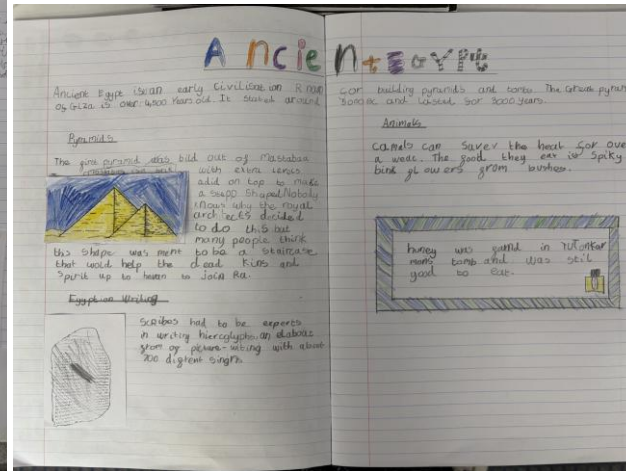 Ancient EGYPt
Ancient Egypt is an early Civilisation
for building pyramids and tombs. The Great pyram
of Giza is over 4,500 years old. It stated around
3000BC and Lasted for 3000 years.
Pyramids
The first pyramid was bild out of Mastabas
with extra
adid on top to make
a stepp shaped. Nobody
knows why the royal
architects decided
to do this but
many people think
this shape was ment to be a staircase
that wold help the dead kins and
spirit up to heaven to join Ra.
Egyption Writing
Scribes had to be experts
in writing hieroglyphs. an elaborate
of picture-writing with about
700 difrent
Animals
Camals can the heat for ove
a week. The food they eat is spiky
flowers from bushes.
honey was in
tomb and was stil
good to eat.